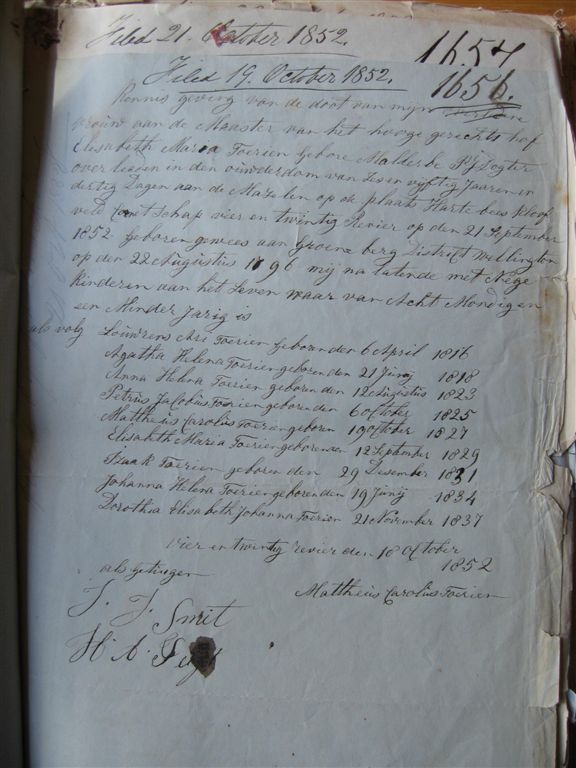 Filed 21. October 1852.
1657
Filed 19. October 1852.
1656.
Kennis geving van de doot van mijn
vrouw aan de Maaster van het hooge gerechts hof
Elisabeth Maria Toerien Gebore Malderbe Pz Dogter
over leeden in den ouwderdom van Ses en vijftig Jaaren en
dertig Dagen aan de Mazelen op de plaats Harte bees kloof
velt Cornet Schap vier en twintig Revier op den 21 September
1852 Geboren gewees aan Groene berg Distrikt Wellington
op den 22 Augustus 1796 mij na latende met Nege
Kinderen aan het Leven waar van Acht Mondig en
een Minder Jarig is
als volg Louwrens Ari Toerien Geboren den 6 April 1816
Agatha Helena Toerien geboren den 21 Junij 1818
Anna Helena Toerien geboren den 12 Augustus 1823
Petrus Jacobus Toerien geboren den 6 October 1825
Mattheus Carolus Toerien geboren 19 October 1827
Elisabeth Maria Toerien geboren den 12 September 1829
Izaak Toerien geboren den 29 Desember 1831
Johanna Helena Toerien geboren den 19 Junij 1834
Dorothia Elisabeth Johanna Toerien 21 November 1837
Vier en twintig revier den 18 October
1852
als getuigen
Mattheus Carolus Toerien
J. J. Smit
H. A.